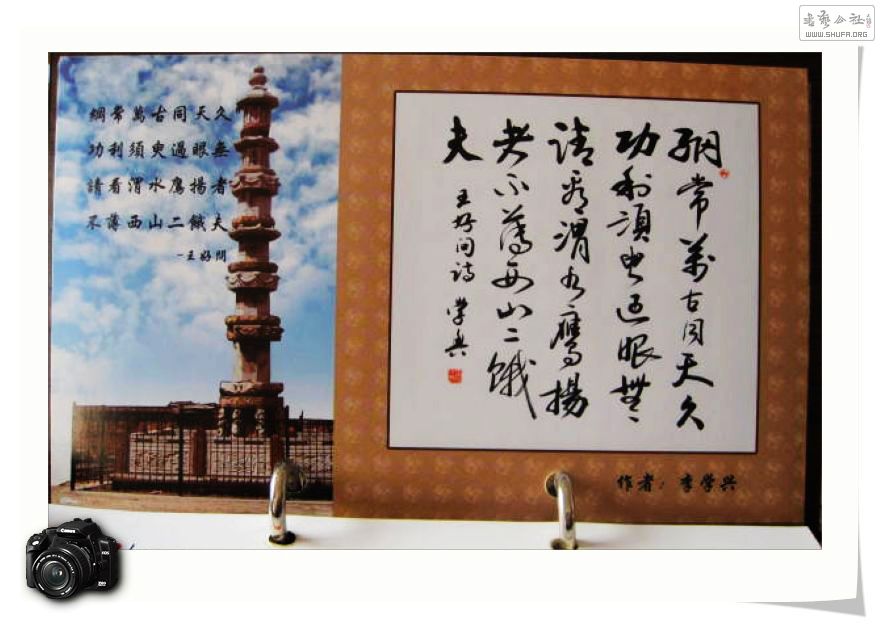 書藝公社
WWW.SHUFA.ORG
綱常萬古同天久
功利須臾過眼無
請看渭水鷹揚者
不薄西山二餓夫
-王好問
綱常萬古同天久
功利須臾過眼無
請看渭水鷹揚
者不薄西山二餓
夫
王好问诗 学兴
作者：李学兴
Canon
EOS